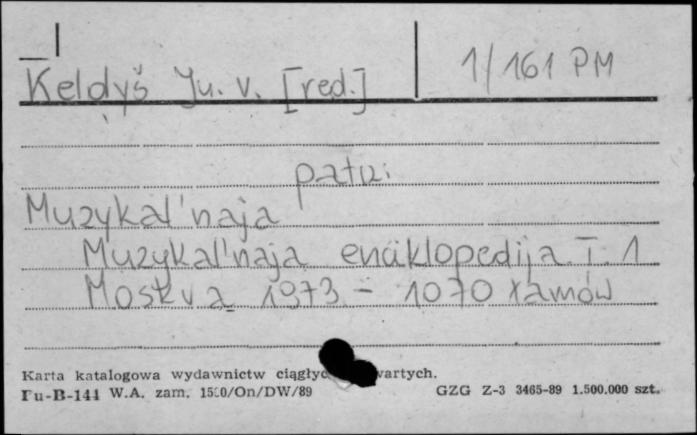 Keldyš Ju. V. [red.] 1/161 PM
patrz:
Muzykal'naja
Muzykal'naja enciklopedija. T. 1
Moskva 1973 - 1070 łamów
Karta katalogowa wydawnictw
Pu-B-141 W.A. zam. 1500/On/DW/89 GZG Z-3 3465-89 1.500.000 szt.